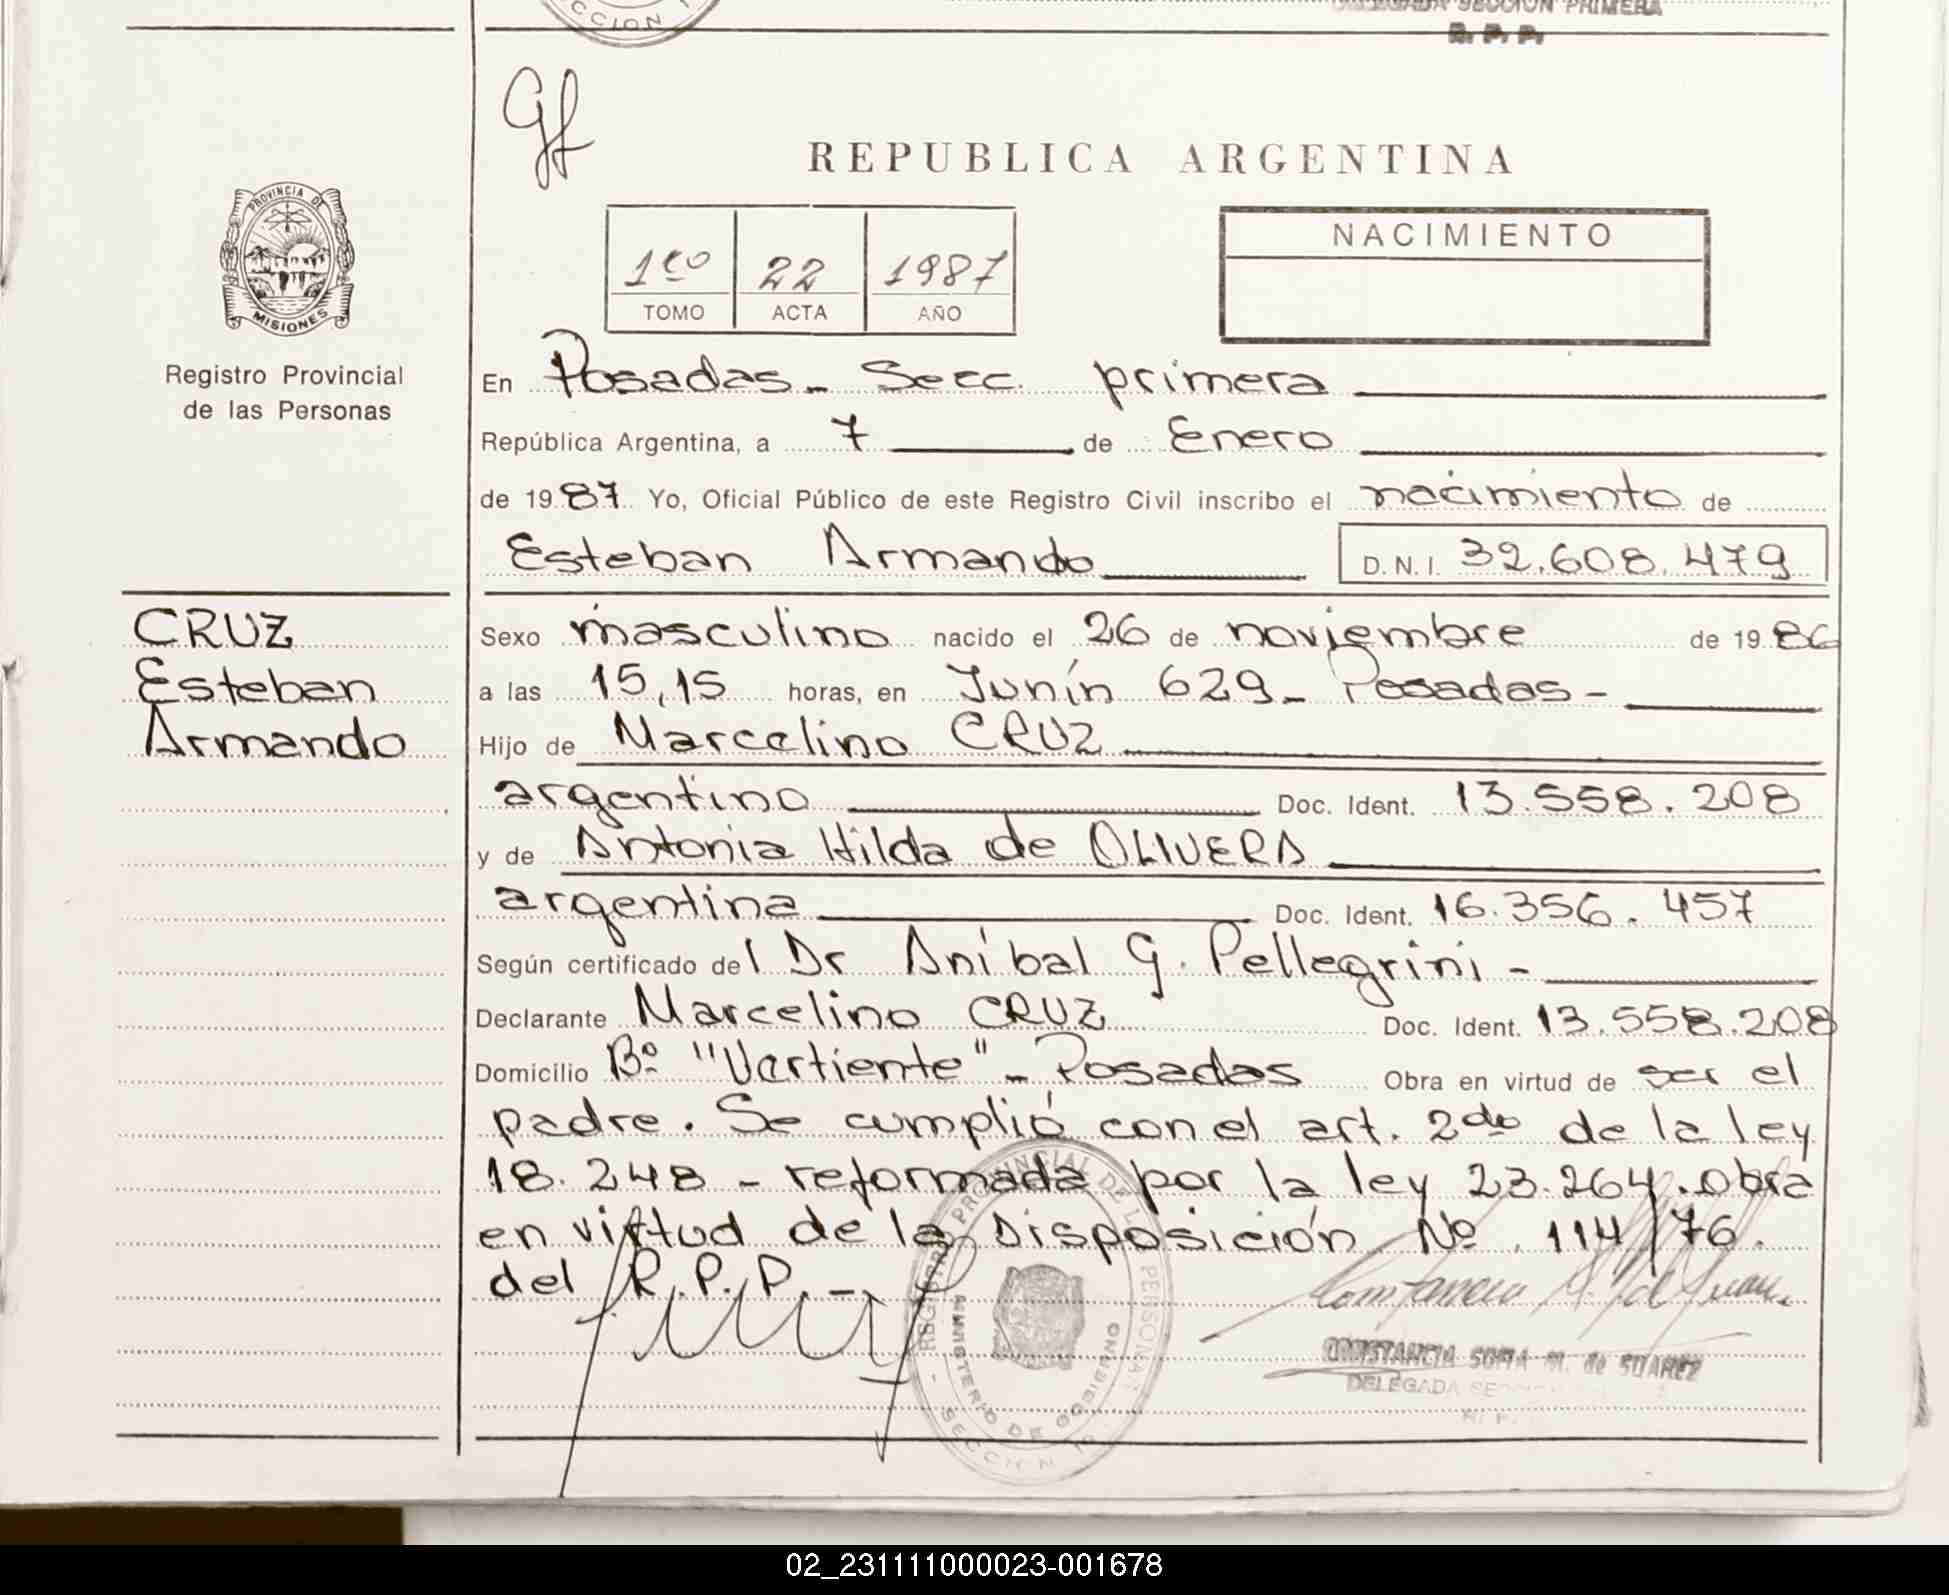 CCION
DELEGADA SECCION PRIMERA
R. P. P.
REPUBLICA ARGENTINA
PROVINCIA DE
MISIONES
Registro Provincial
de las Personas
1ro 22 1987
TOMO ACTA AÑO
NACIMIENTO
En Posadas - Secc. primera
República Argentina, a 7 de Enero
de 1987. Yo, Oficial Público de este Registro Civil inscribo el nacimiento de
Esteban Armando D.N.I. 32.608.479
CRUZ
Esteban
Armando
Sexo masculino nacido el 26 de noviembre de 1986
a las 15,15 horas, en Junín 629 - Posadas -
Hijo de Marcelino CRUZ
argentino Doc. Ident. 13.558.208
y de Antonia Hilda de OLIVERA
argentina Doc. Ident. 16.356.457
Según certificado del Dr Aníbal G. Pellegrini -
Declarante Marcelino CRUZ Doc. Ident. 13.558.208
Domicilio Bº "Vertiente" - Posadas Obra en virtud de ser el
padre. Se cumplió con el art. 2do de la ley
18.248 - reformada por la ley 23.264. Obra
en virtud de la Disposición Nº 114/76.
del R.P.P. -
REGISTRO PROVINCIAL DE LAS PERSONAS
MINISTERIO DE GOBIERNO
SECCION 1º
CONSTANCIA SOFIA M. de SUAREZ
DELEGADA
02_231111000023-001678